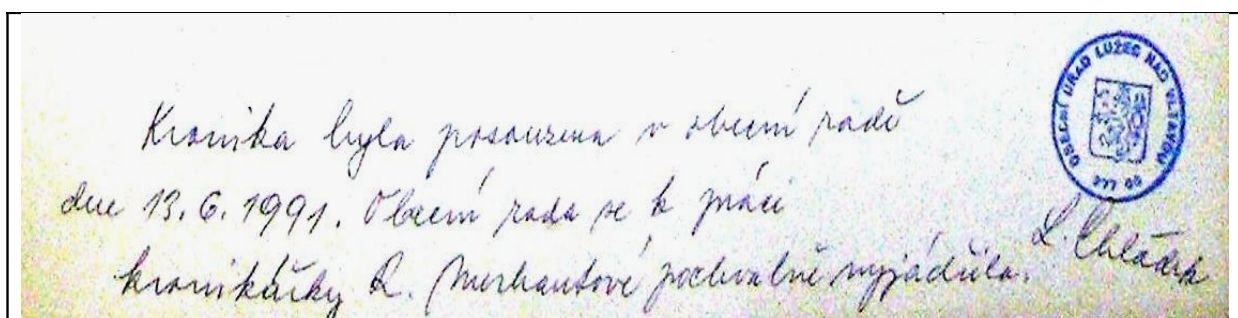 Kronika byla posouzena v obecní radě
dne 13. 6. 1991. Obecní rada se k práci
kronikářky R. Merhautové pochvalně vyjádřila.
OBECNÍ ÚŘAD LUŽEC NAD VLTAVOU
277 06
L. Chládek